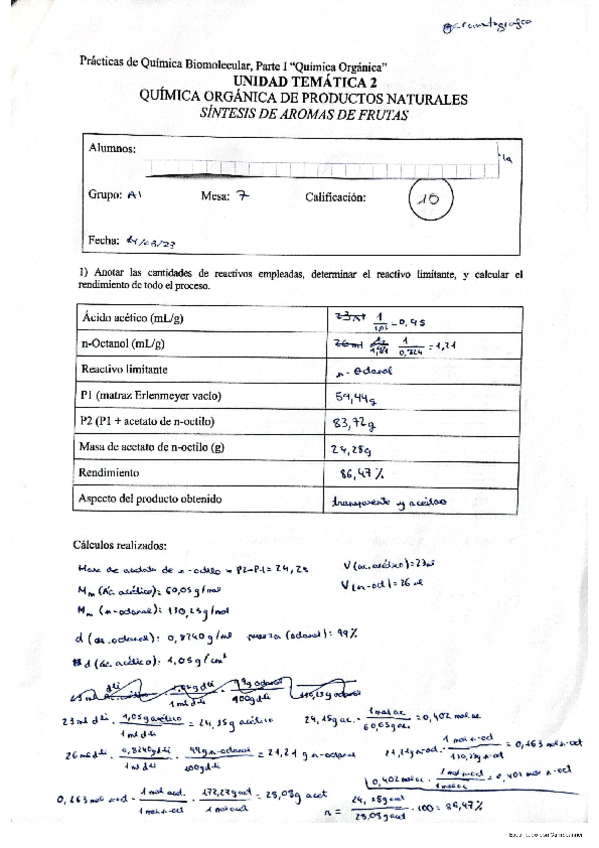 @cromatografeo
Prácticas de Química Biomolecular, Parte I "Química Orgánica"
UNIDAD TEMÁTICA 2
QUÍMICA ORGÁNICA DE PRODUCTOS NATURALES
SÍNTESIS DE AROMAS DE FRUTAS
Alumnos:
Grupo: A1 Mesa: 7 Calificación: 10
Fecha: 14/03/23
1) Anotar las cantidades de reactivos empleadas, determinar el reactivo limitante, y calcular el
rendimiento de todo el proceso.
Ácido acético (mL/g) 23 ml 1/1,05 = 0,95
n-Octanol (mL/g) 26 ml 1/0,824 = 1,21
Reactivo limitante n-octanol
P1 (matraz Erlenmeyer vacío) 59,44g
P2 (P1 + acetato de n-octilo) 83,72g
Masa de acetato de n-octilo (g) 24,28g
Rendimiento 86,47%
Aspecto del producto obtenido transparente y aceitoso
Cálculos realizados:
Masa de acetato de n-octilo = P2-P1 = 24,28 V(ac. acético)=23ml
Mm (Ác. acético): 60,05 g/mol V(n-oct)=26 ml
Mm (n-octanol): 130,23g/mol
d (n-octanol): 0,8240 g/ml pureza (octanol): 99%
d (ác. acético): 1,05 g/cm³
23 ml dli · 1,05g acético/1 ml dli = 24,15g acético 24,15g ac. · 1 mol ac/60,05g ac = 0,402 mol ac
26 ml dli · 0,8240g dli/1 ml dli · 99g n-octanol/100g dli = 21,21 g n-octanol 21,21g n-oct · 1 mol n-oct/130,23g n-oct = 0,163 mol n-oct
0,402 mol ac · 1 mol n-oct/1 mol ac = 0,402 mol n-oct
0,163 mol n-oct · 1 mol acet./1 mol n-oct · 172,27g acet/1 mol acet = 28,08g acet η = 24,28g acet/28,08g acet · 100 = 86,47%